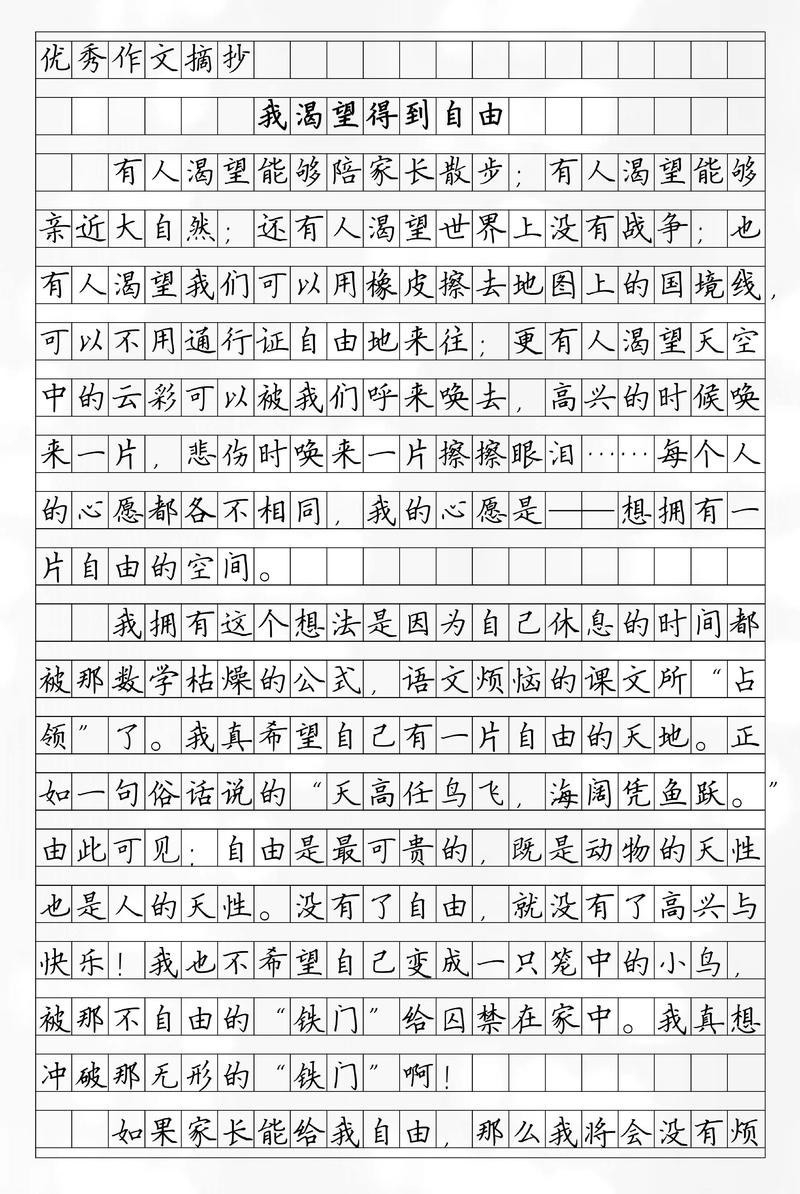 优秀作文摘抄
我渴望得到自由
有人渴望能够陪家长散步；有人渴望能够
亲近大自然；还有人渴望世界上没有战争；也
有人渴望我们可以用橡皮擦去地图上的国境线，
可以不用通行证自由地来往；更有人渴望天空
中的云彩可以被我们呼来唤去，高兴的时候唤
来一片，悲伤时唤来一片擦擦眼泪……每个人
的心愿都各不相同，我的心愿是——想拥有一
片自由的空间。
我拥有这个想法是因为自己休息的时间都
被那数学枯燥的公式，语文烦恼的课文所“占
领”了。我真希望自己有一片自由的天地。正
如一句俗话说的“天高任鸟飞，海阔凭鱼跃。”
由此可见：自由是最可贵的，既是动物的天性
也是人的天性。没有了自由，就没有了高兴与
快乐！我也不希望自己变成一只笼中的小鸟，
被那不自由的“铁门”给囚禁在家中。我真想
冲破那无形的“铁门”啊！
如果家长能给我自由，那么我将会没有烦